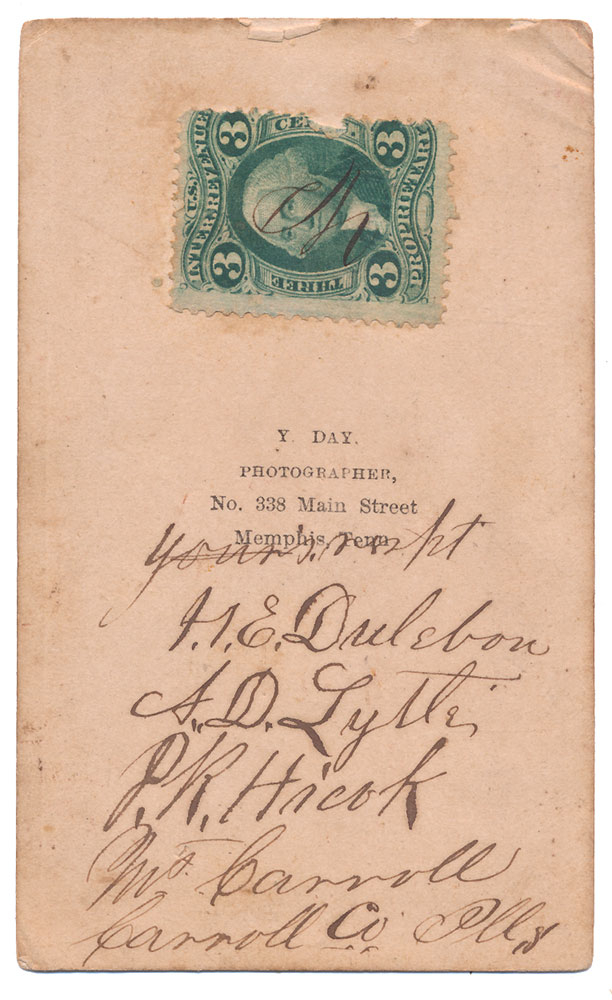 U.S. INTER. REVENUE
3 CENTS 3
3 THREE 3
PROPRIETARY
Y. DAY.
PHOTOGRAPHER,
No. 338 Main Street
Memphis, Tenn
Yours
H. E. Dulebon
A. D. Lytle
P. K. Hicok
Mt Carroll
Carroll Co Ills